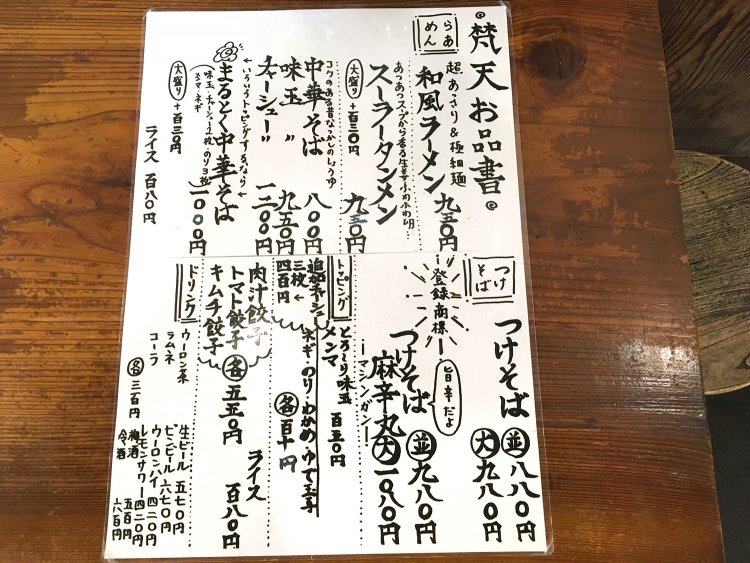 梵天お品書
らあめん
超あっさり&極細麺
和風ラーメン 九五〇円
スーラータンメン 九五〇円
大盛り+百三〇円
コクのある昔なつかしのしょうゆ
中華そば 八〇〇円
味玉〃 九五〇円
チャーシュー〃 一二〇〇円
←いろいろトッピングするなら←
まるとく中華そば 一一〇〇円
大盛り+百三〇円
ライス 百八〇円
つけそば
つけそば 並 八八〇円
大 九八〇円
登録商標
旨辛だよ
つけそば 並 九八〇円
麻辛丸 大 一〇八〇円
ーマシンガンー
トッピング
とろ〜り味玉 百五〇円
メンマ
ネギ・のり・わかめ・ゆで玉子
各 百十円
追加チャーシュー
三枚
四百円
肉汁餃子
トマト餃子
キムチ餃子
各 五五〇円
ライス 百八〇円
ドリンク
ウーロン茶
ラムネ
コーラ
各 三百円
生ビール 五七〇円
ビンビール 六七〇円
ウーロンハイ 四二〇円
レモンサワー 四二〇円
梅酒 五百円
冷酒 六八百円